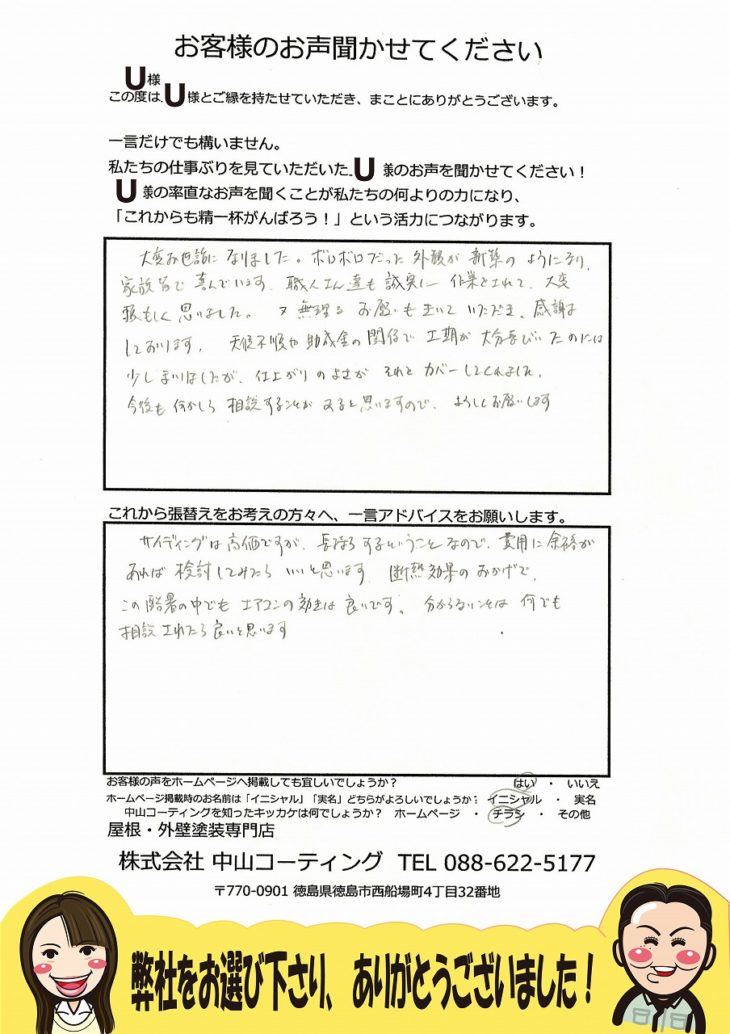 お客様のお声聞かせてください
U様
この度は、U様とご縁を持たせていただき、まことにありがとうございます。
一言だけでも構いません。
私たちの仕事ぶりを見ていただいた、U様のお声を聞かせてください！
U様の率直なお声を聞くことが私たちの何よりの力になり、
「これからも精一杯がんばろう！」という活力につながります。
大変お世話になりました。ボロボロだった外観が新築のようになり、
家族皆で喜んでいます。職人さん達も誠実に作業をされて、大変
頼もしく思いました。又無理なお願いもきいていただき、感謝を
しております。天候不順や助成金の関係で工期が大分長びいたのには
少しまいりましたが、仕上がりのよさがそれをカバーしてくれました。
今後も何かしら相談することがあると思いますので、よろしくお願いします
これから張替えをお考えの方々へ、一言アドバイスをお願いします。
サイディングは高価ですが、長持ちするということなので、費用に余裕が
あれば検討してみたらいいと思います。断熱効果のおかげで、
この酷暑の中でもエアコンの効きは良いです。分からないことは何でも
相談されたら良いと思います
お客様の声をホームページへ掲載しても宜しいでしょうか？ はい ・ いいえ
ホームページ掲載時のお名前は「イニシャル」「実名」どちらがよろしいでしょうか？ イニシャル ・ 実名
中山コーティングを知ったキッカケは何でしょうか？ ホームページ ・ チラシ ・ その他
屋根・外壁塗装専門店
株式会社 中山コーティング TEL 088-622-5177
〒770-0901 徳島県徳島市西船場町4丁目32番地
弊社をお選び下さり、ありがとうございました！